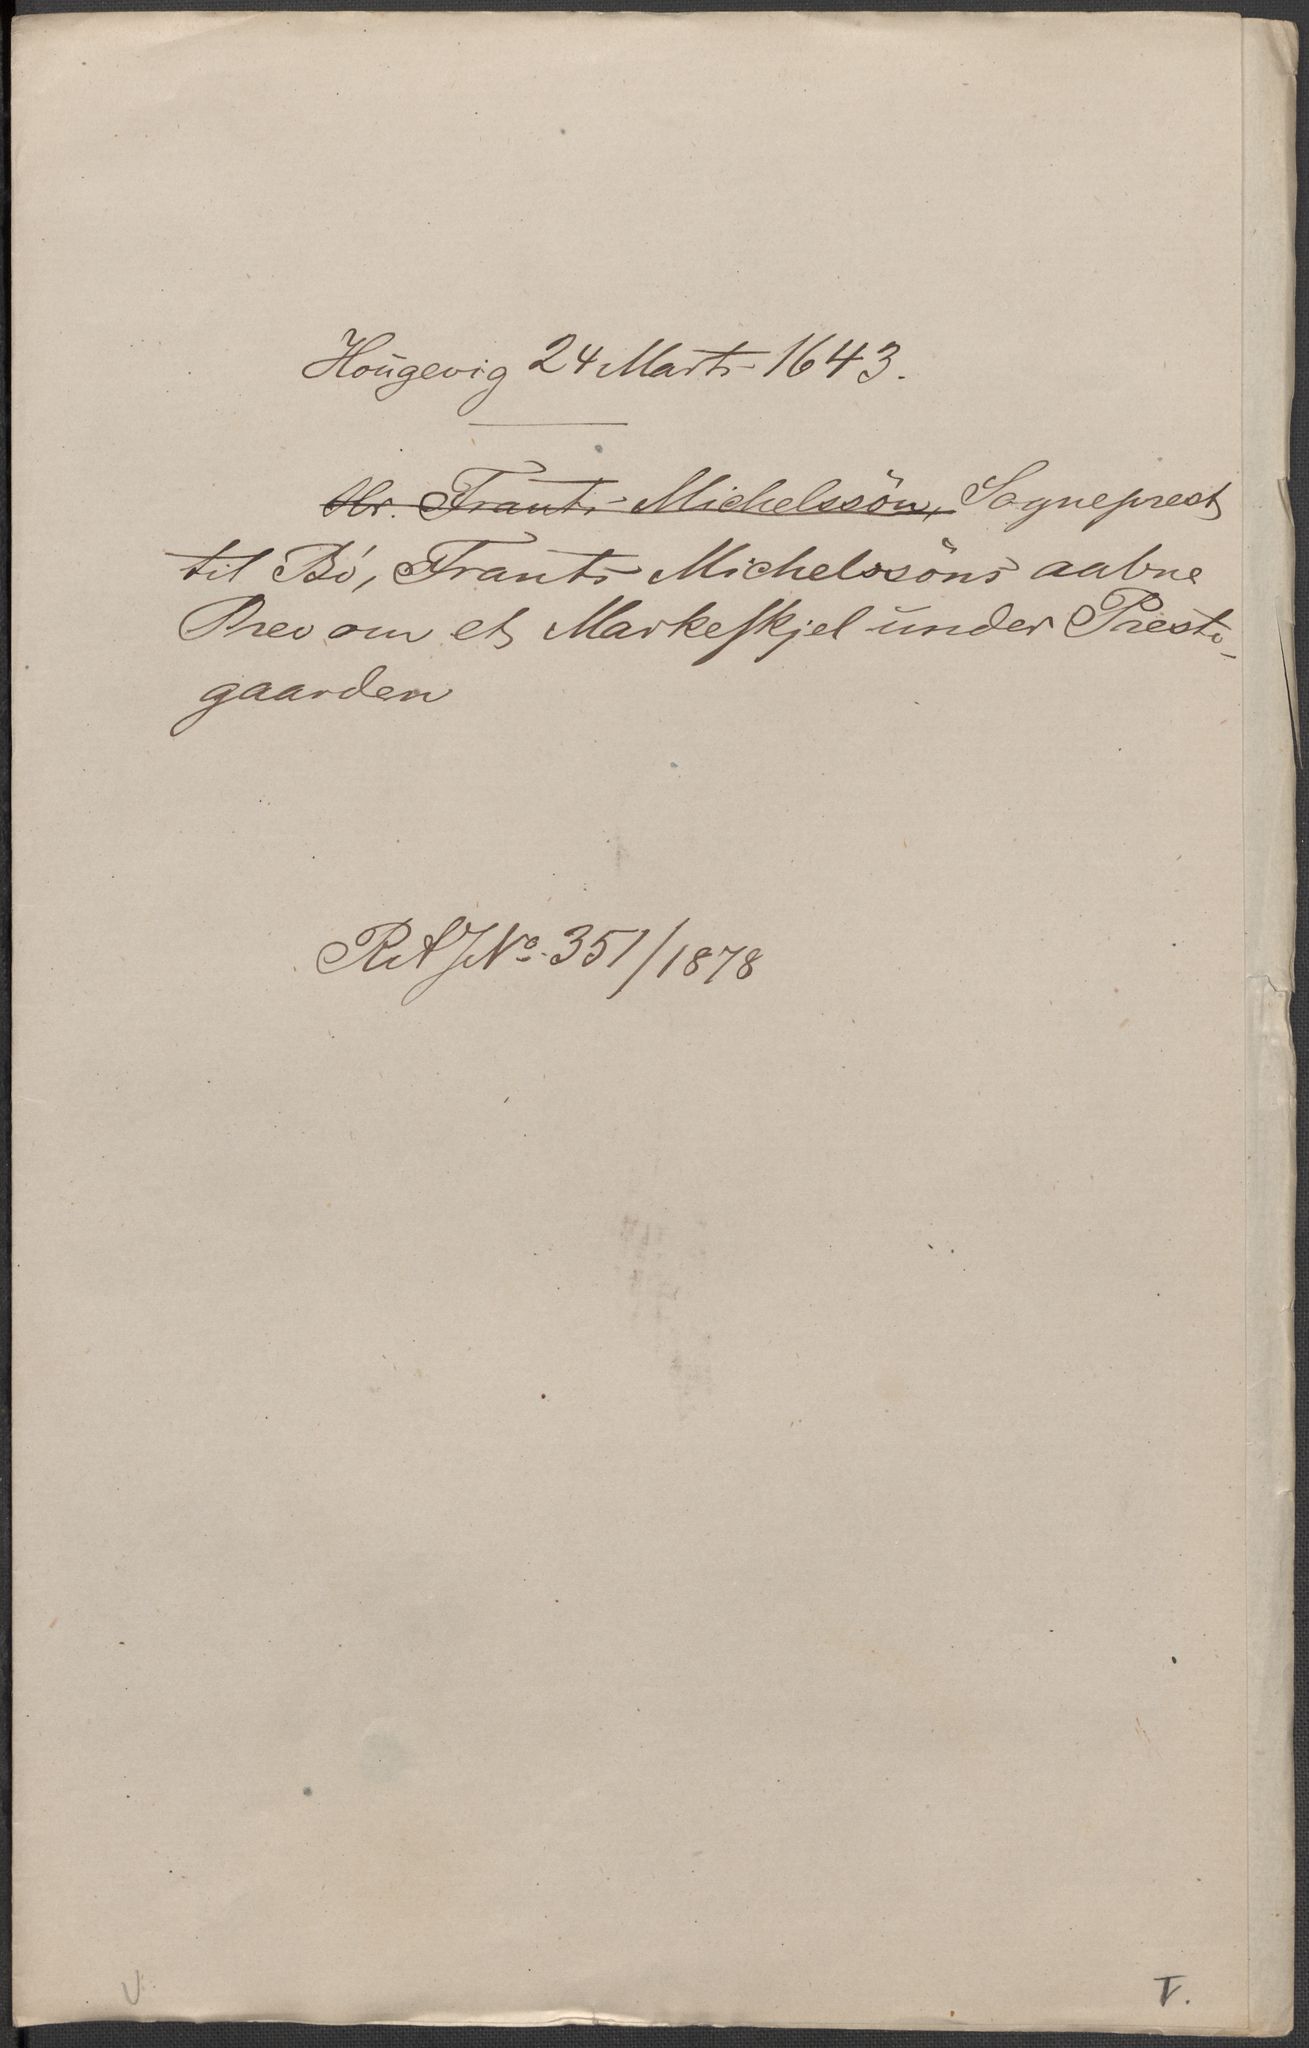 Hougevig 24 Marts 1643.
Hr. Frants Michelssön, Sogneprest
til Bö, Frants Michelssöns aabne
Brev om et Markeskjel under Preste-
gaarden
RA JNo. 351/1878
V.
T.